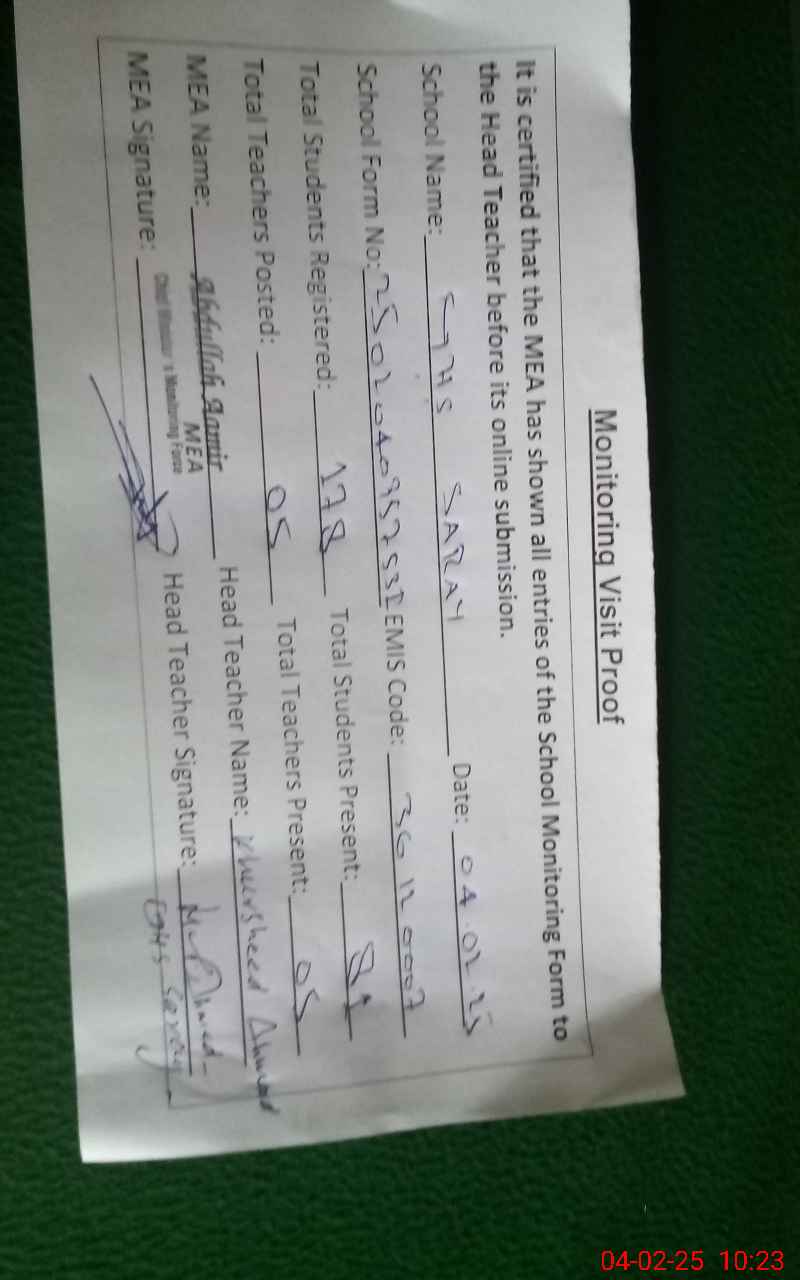 Monitoring Visit Proof
It is certified that the MEA has shown all entries of the School Monitoring Form to
the Head Teacher before its online submission.
School Name: GHS SARAY Date: 04.02.25
School Form No: EMIS Code: 36120007
Total Students Registered: 178 Total Students Present:
Total Teachers Posted: 05 Total Teachers Present: 05
MEA Name: Abdullah Aamir Head Teacher Name: Khursheed Ahmad
MEA
Chief Minister's Monitoring Force
MEA Signature: Head Teacher Signature:
GHS Saray
04-02-25 10:23